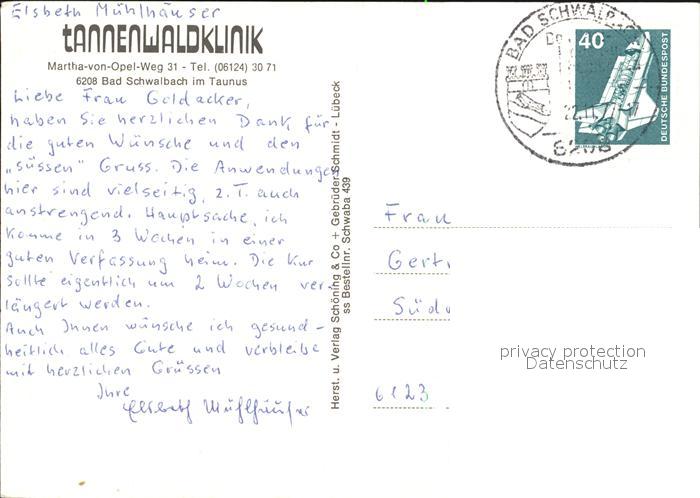 Elsbeth Mühlhäuser
TANNENWALDKLINIK
Martha-von-Opel-Weg 31 - Tel. (06124) 30 71
6208 Bad Schwalbach im Taunus
Liebe Frau Goldacker,
haben Sie herzlichen Dank, für
die guten Wünsche und den
„süssen" Gruss. Die Anwendungen
hier sind vielseitig, z.T. auch
anstrengend. Hauptsache, ich
komme in 3 Wochen in einer
guten Verfassung heim. Die Kur
sollte eigentlich um 2 Wochen ver-
längert werden.
Auch Ihnen wünsche ich gesund-
heitlich alles Gute und verbleibe
mit herzlichen Grüssen
Ihre
Elsbeth Mühlhäuser
Herst. u. Verlag Schöning & Co + Gebrüder Schmidt - Lübeck
ss Bestellnr. Schwaba 439
BAD SCHWALB
22.11.
6208
40
DEUTSCHE BUNDESPOST
Frau
Gert
Süd
6123
privacy protection
Datenschutz